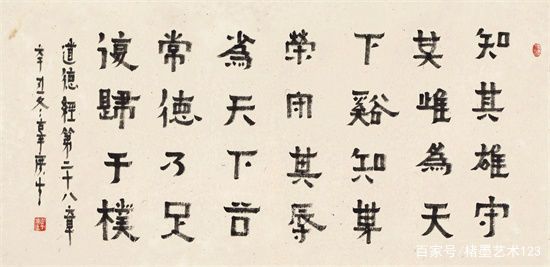 知其雄守
其雌為天
下谿知其
榮守其辱
為天下谷
常德乃足
復歸于樸
道德經第二十八章
辛丑冬
百家号/楮墨艺术123